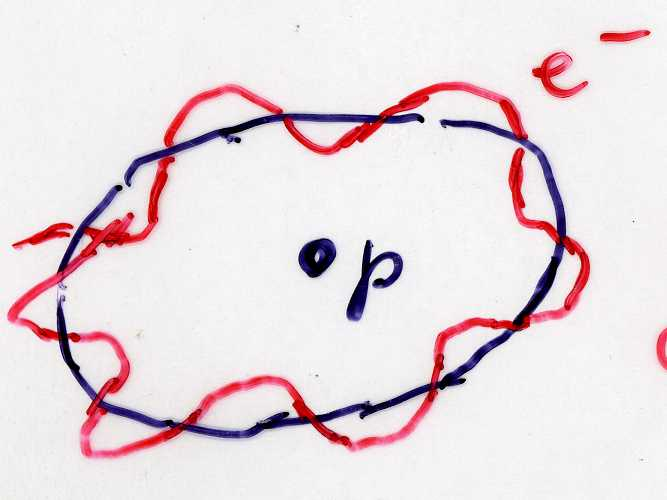 e⁻
p